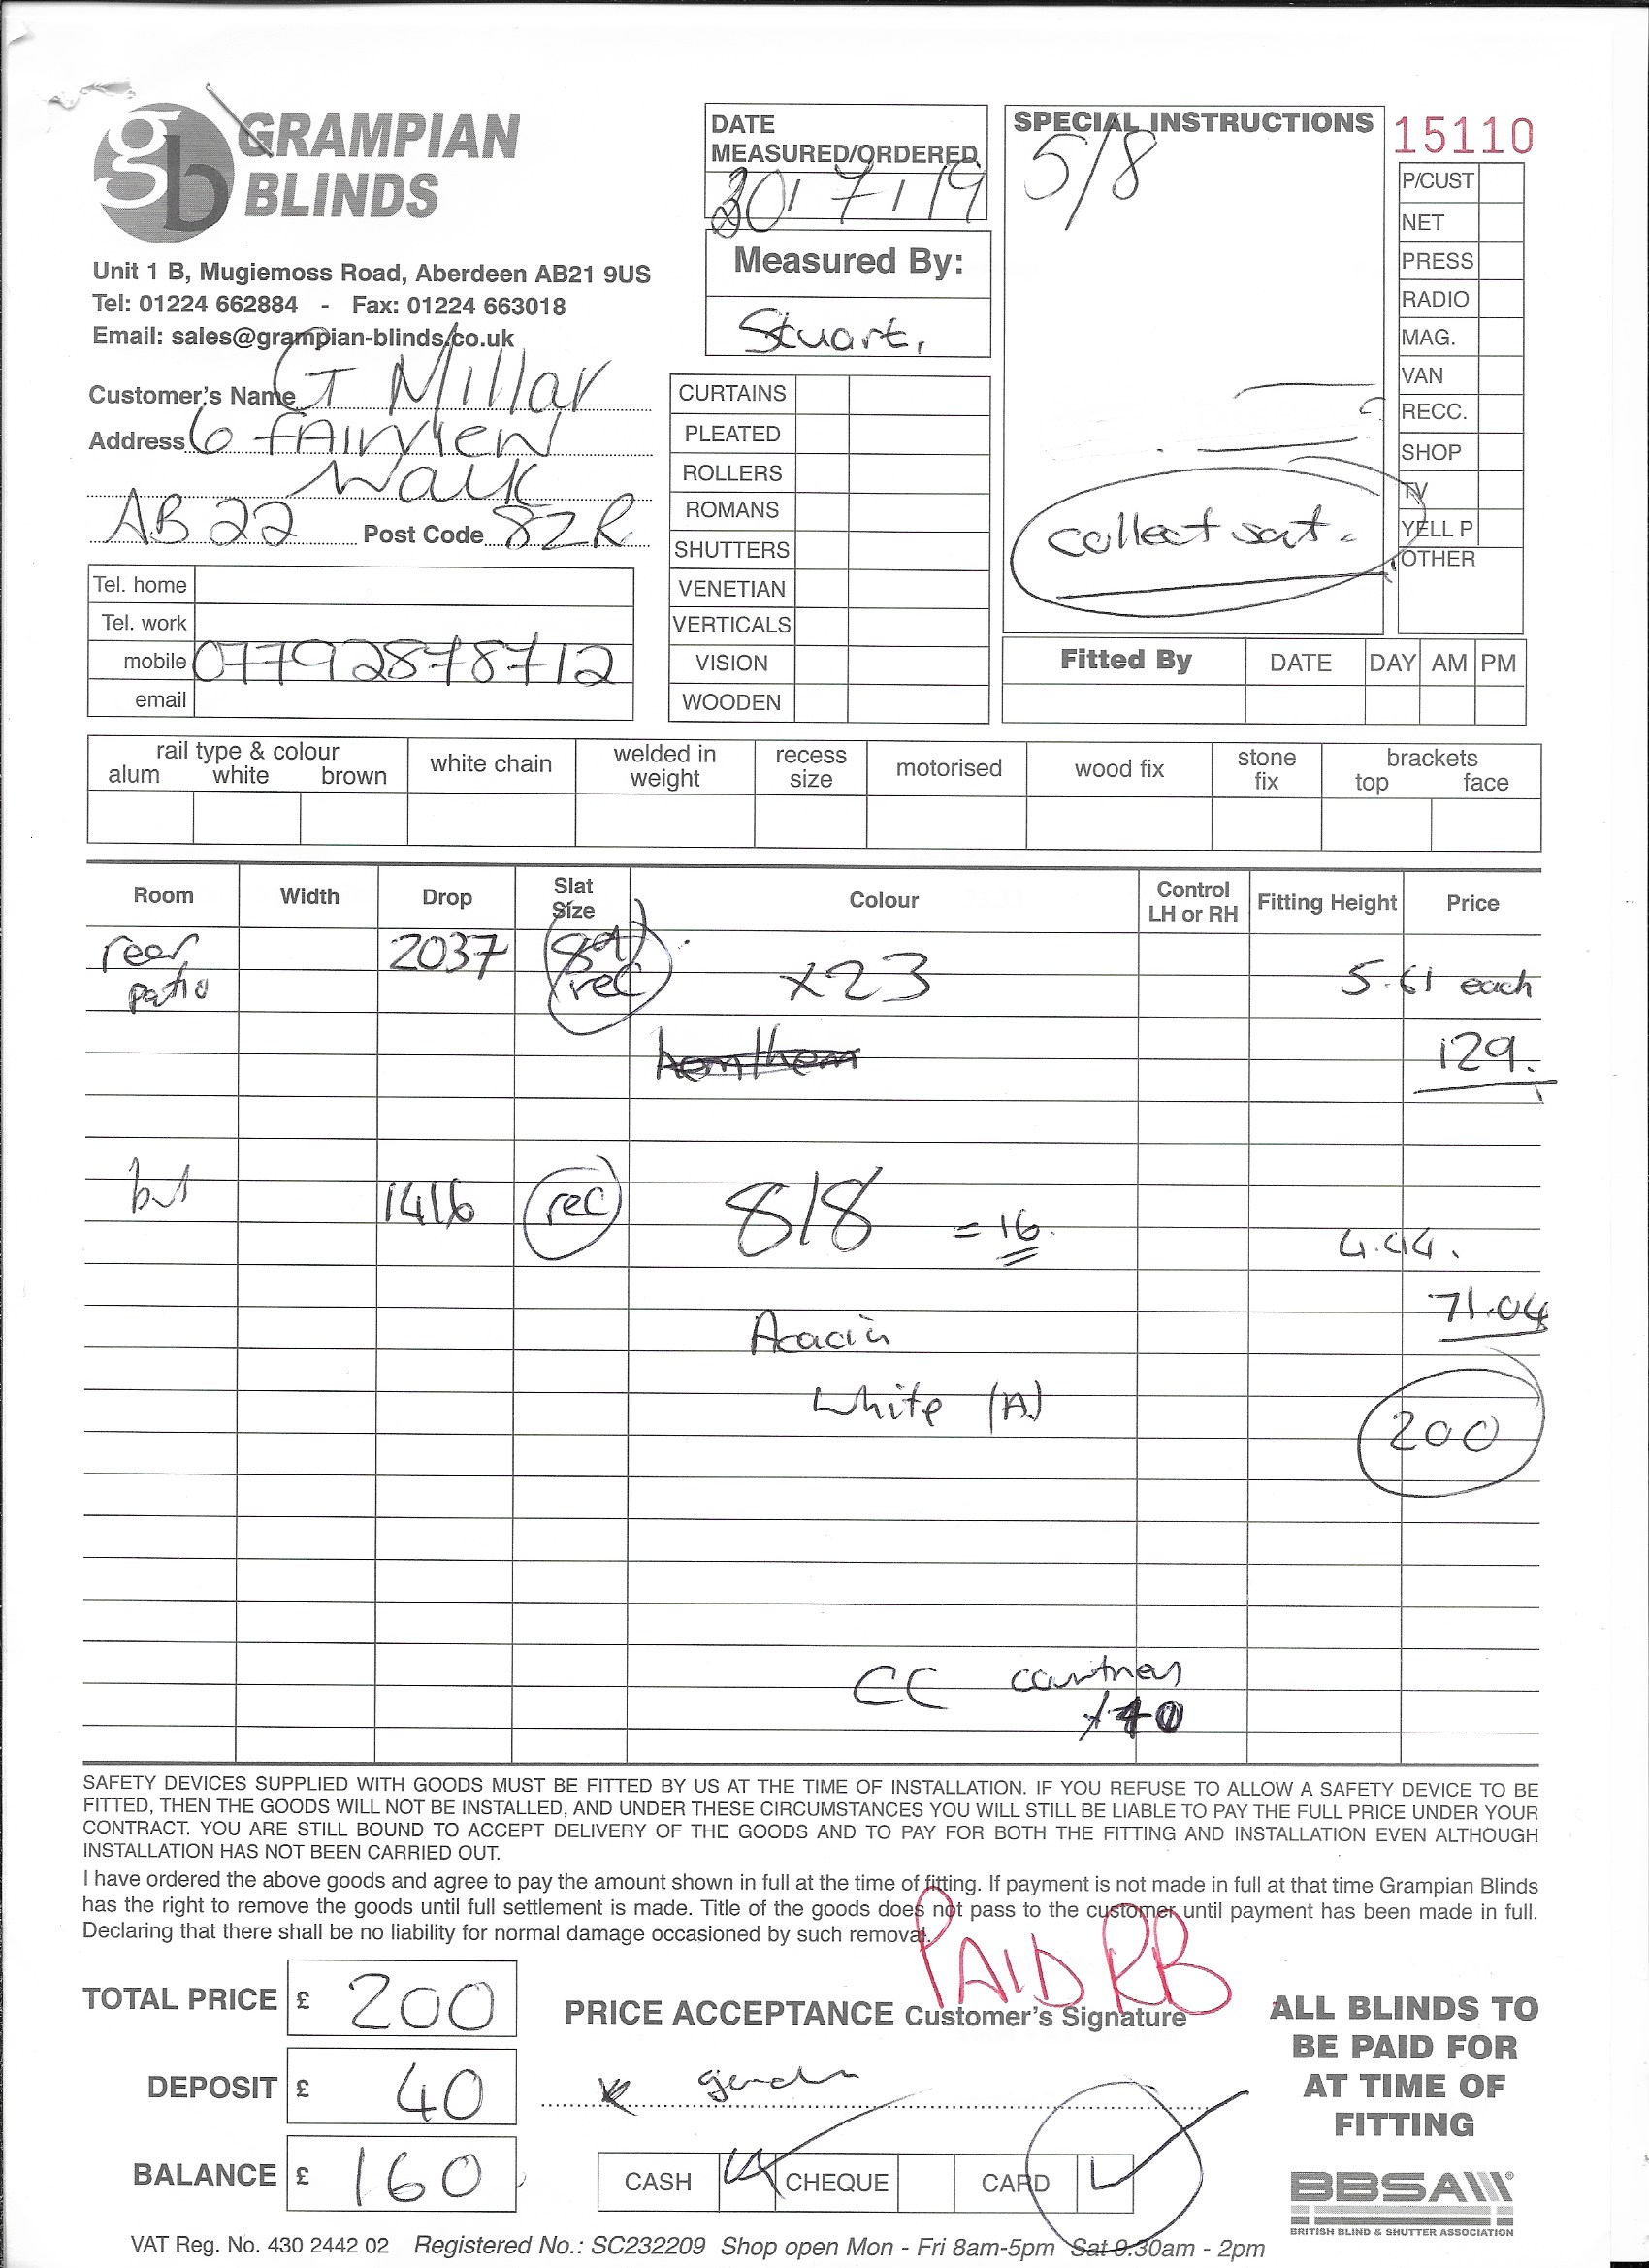 GRAMPIAN
BLINDS
Unit 1 B, Mugiemoss Road, Aberdeen AB21 9US
Tel: 01224 662884 - Fax: 01224 663018
Email: sales@grampian-blinds.co.uk
DATE
MEASURED/ORDERED
30/7/19
Measured By:
Stuart.
SPECIAL INSTRUCTIONS
5/8
collect sat.
15110
P/CUST
NET
PRESS
RADIO
MAG.
VAN
RECC.
SHOP
TV
YELL P
OTHER
Customer's Name G Millar
Address 6 FAIRVIEW
Walk
AB22 Post Code 8ZR
Tel. home
Tel. work
mobile 07792878712
email
CURTAINS
PLEATED
ROLLERS
ROMANS
SHUTTERS
VENETIAN
VERTICALS
VISION
WOODEN
Fitted By DATE DAY AM PM
rail type & colour
alum white brown
white chain
welded in
weight
recess
size
motorised
wood fix
stone
fix
brackets
top face
Room Width Drop Slat Size Colour Control LH or RH Fitting Height Price
rear 2037
patio rec x23 5.61 each
129.
1416 rec 8/8 = 16. 4.44.
71.04
Acacia
White (A)
200
CC courtney
SAFETY DEVICES SUPPLIED WITH GOODS MUST BE FITTED BY US AT THE TIME OF INSTALLATION. IF YOU REFUSE TO ALLOW A SAFETY DEVICE TO BE
FITTED, THEN THE GOODS WILL NOT BE INSTALLED, AND UNDER THESE CIRCUMSTANCES YOU WILL STILL BE LIABLE TO PAY THE FULL PRICE UNDER YOUR
CONTRACT. YOU ARE STILL BOUND TO ACCEPT DELIVERY OF THE GOODS AND TO PAY FOR BOTH THE FITTING AND INSTALLATION EVEN ALTHOUGH
INSTALLATION HAS NOT BEEN CARRIED OUT.
I have ordered the above goods and agree to pay the amount shown in full at the time of fitting. If payment is not made in full at that time Grampian Blinds
has the right to remove the goods until full settlement is made. Title of the goods does not pass to the customer until payment has been made in full.
Declaring that there shall be no liability for normal damage occasioned by such removal.
PAID RB
TOTAL PRICE £ 200
PRICE ACCEPTANCE Customer's Signature
DEPOSIT £ 40
BALANCE £ 160
CASH CHEQUE CARD
ALL BLINDS TO
BE PAID FOR
AT TIME OF
FITTING
BBSA
BRITISH BLIND & SHUTTER ASSOCIATION
VAT Reg. No. 430 2442 02 Registered No.: SC232209 Shop open Mon - Fri 8am-5pm Sat 9.30am - 2pm